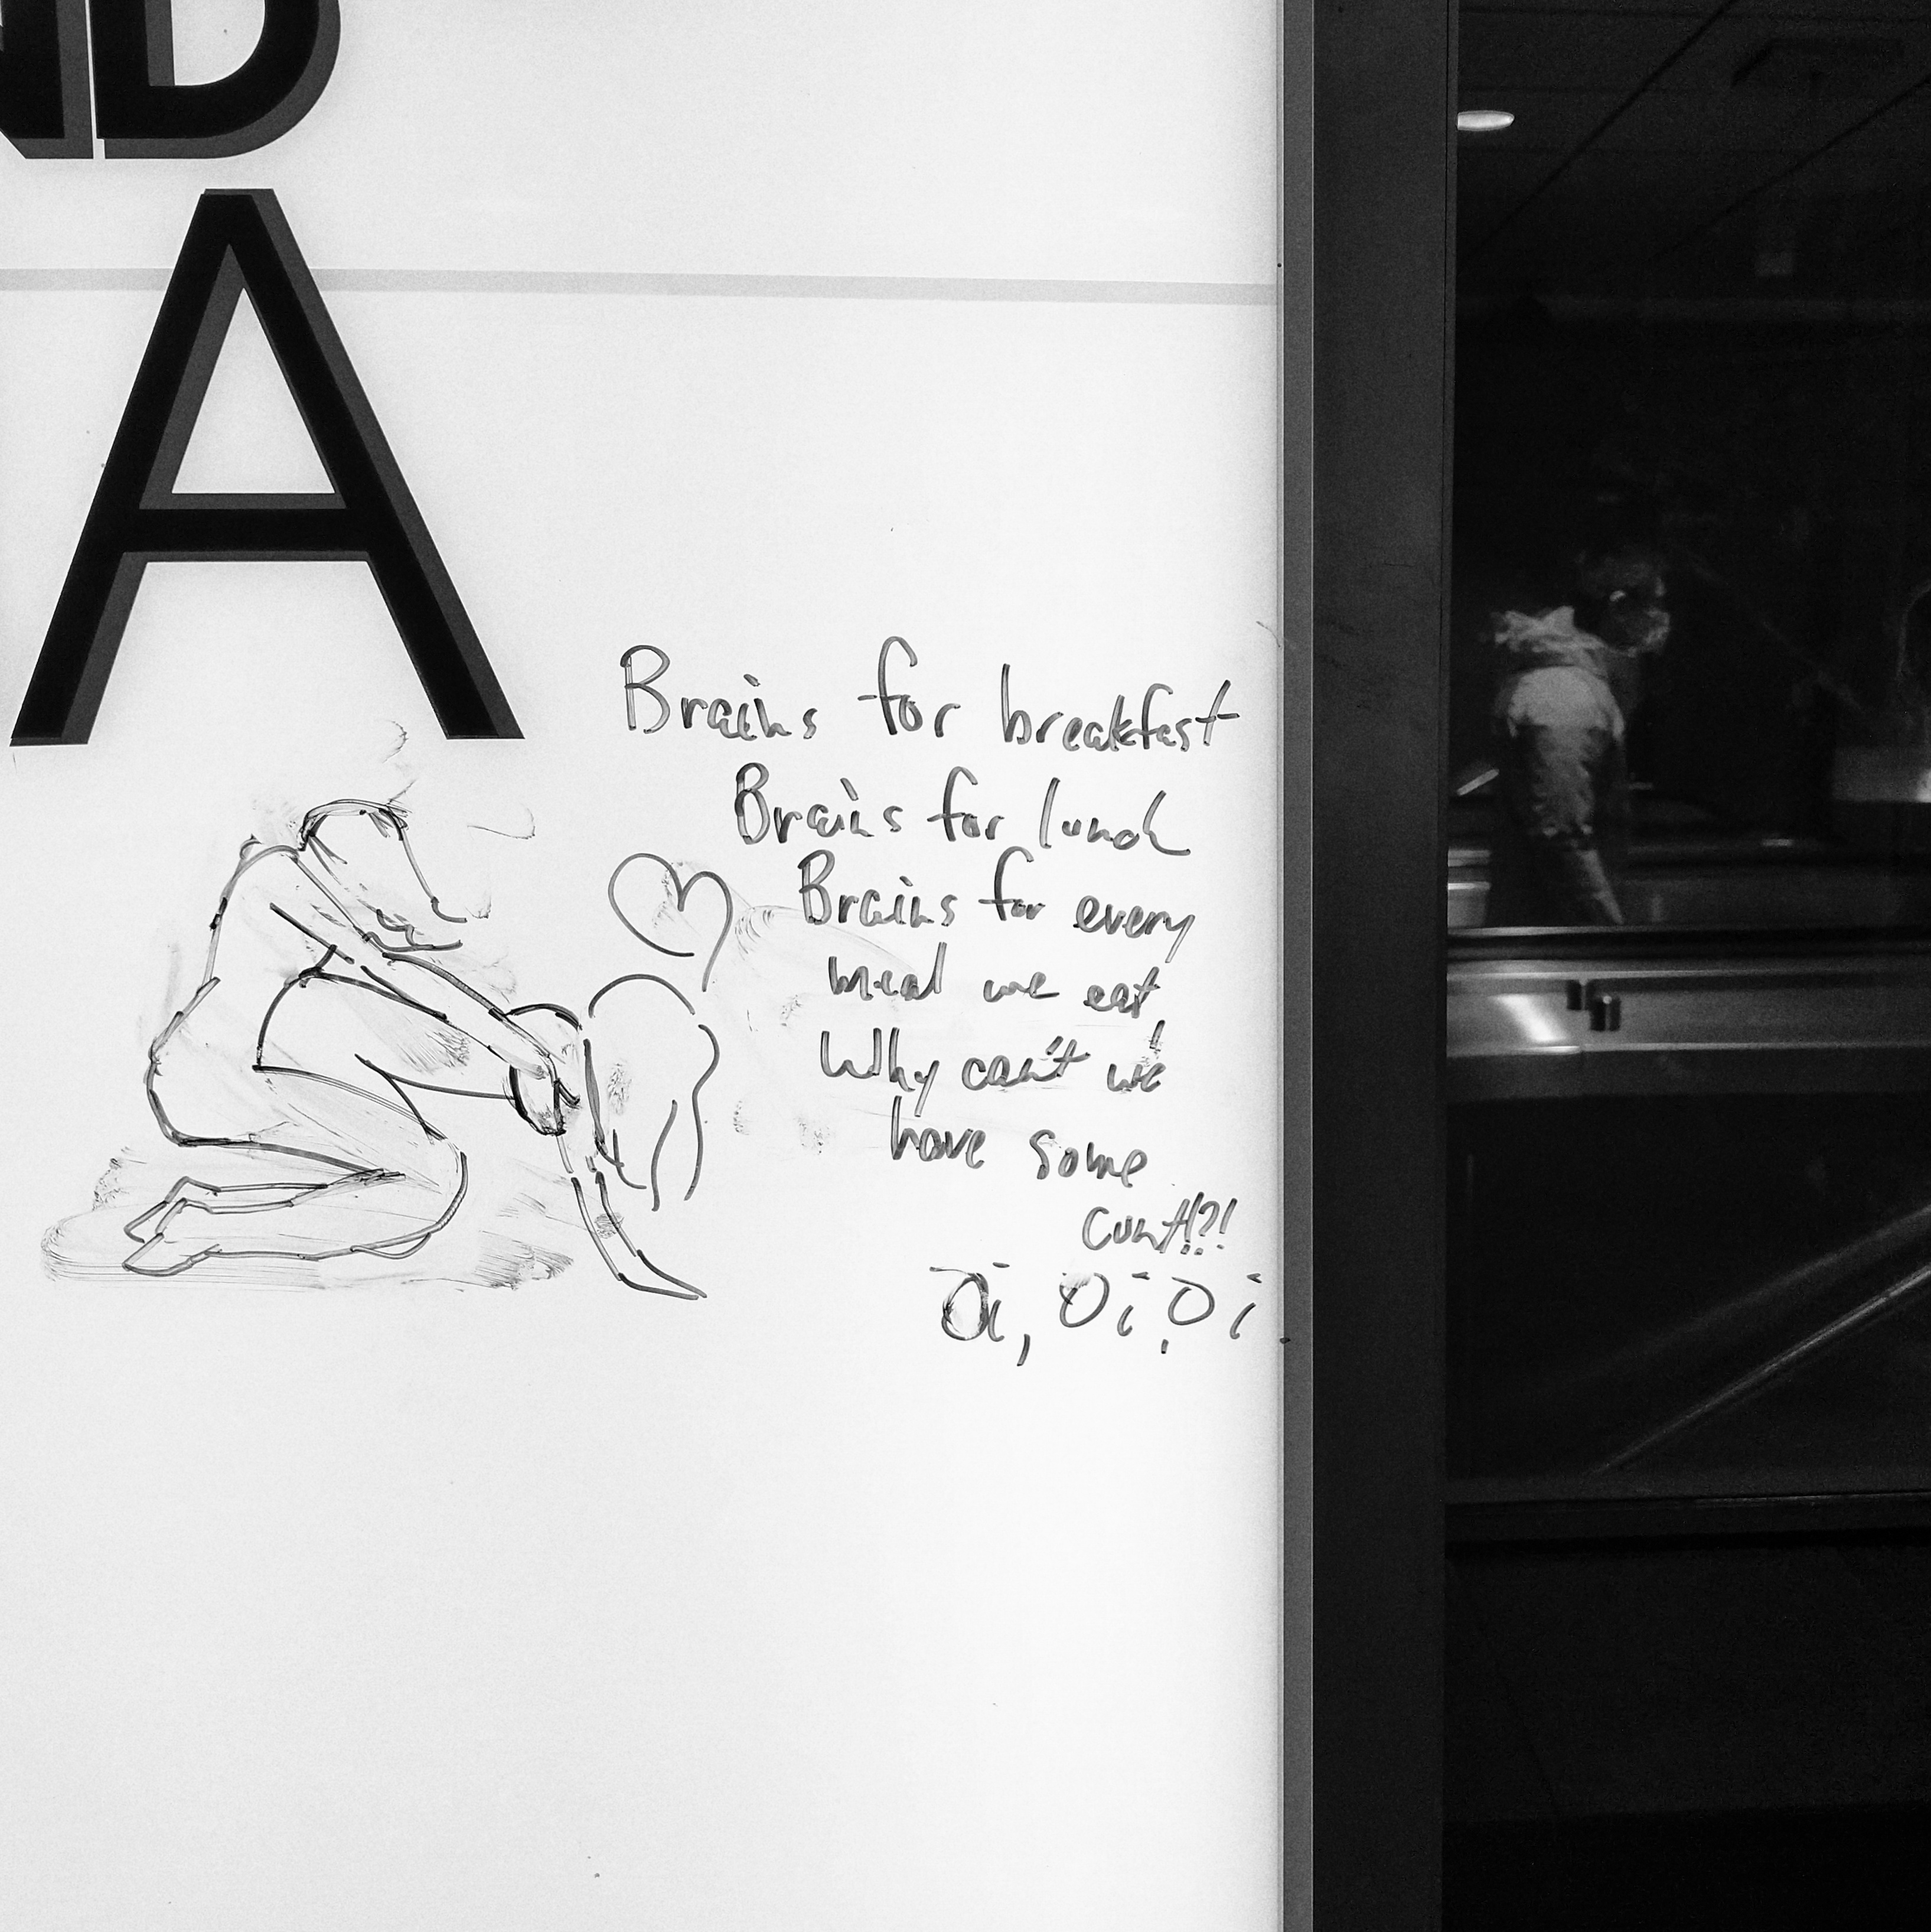 ND
A
Brains for breakfast
Brains for lunch
Brains for every
meal we eat
Why can't we
have some
cunt!?!
Oi, Oi, Oi.